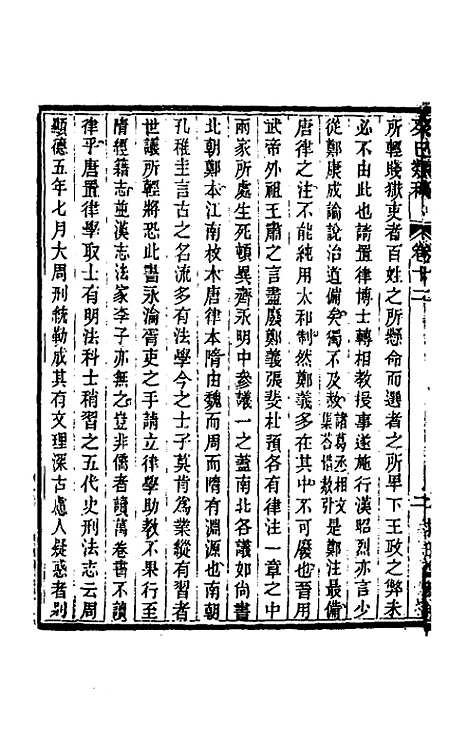 癸巳類稿 卷十二
所輕賤獄吏者百姓之所懸命而選者之所卑下王政之弊未
必不由此也請置律博士轉相教授事遂施行漢昭烈亦言少
從鄭康成論說治道備矣獨不及赦諸葛丞相文集苔惜赦引是鄭注最備
唐律之注不能純用太和制然鄭義多在其中不可廢晋用
武帝外祖王肅之言盡廢鄭義張斐杜預各有律注一章之中
兩家所處生死頓異齊永明中參議一之蓋南北各議如尚書
北朝鄭本江南枚木唐律本隋由魏而周而隋有淵源也南朝
孔稚圭言古之名流多有法學今之士子莫肯爲業縱有習者
世議所輕將恐此書永淪胥吏之手請立律學助敎不果行至
隋經籍志並漢志法家李子亦無之豈非儒者讀萬卷書不讀
律乎唐置律學取士有明法科士稍習之五代史刑法志云周
顯德五年七月大周刑統勒成其有文理深古慮人疑惑者别